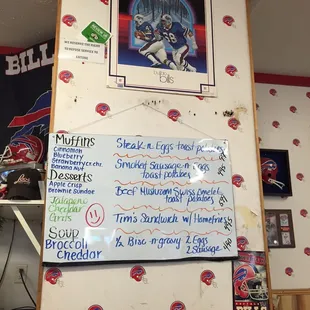 BILLS
bills
Muffins
Cinnamon
Blueberry
Strawberry cr. chz.
Banana Nut
Desserts
Apple Crisp
Brownie Sundae
Jalapeno
Cheddar
Grits
Soup
Broccoli
Cheddar
Steak-n-Eggs toast potatoes
Smoked Sausage-n-Eggs
toast potatoes
Beef Mushroom Swiss Omelet
toast potatoes
Tim's Sandwich w/ Homefries
½ Bisc-n-gravy 2 Eggs
2 Sausage